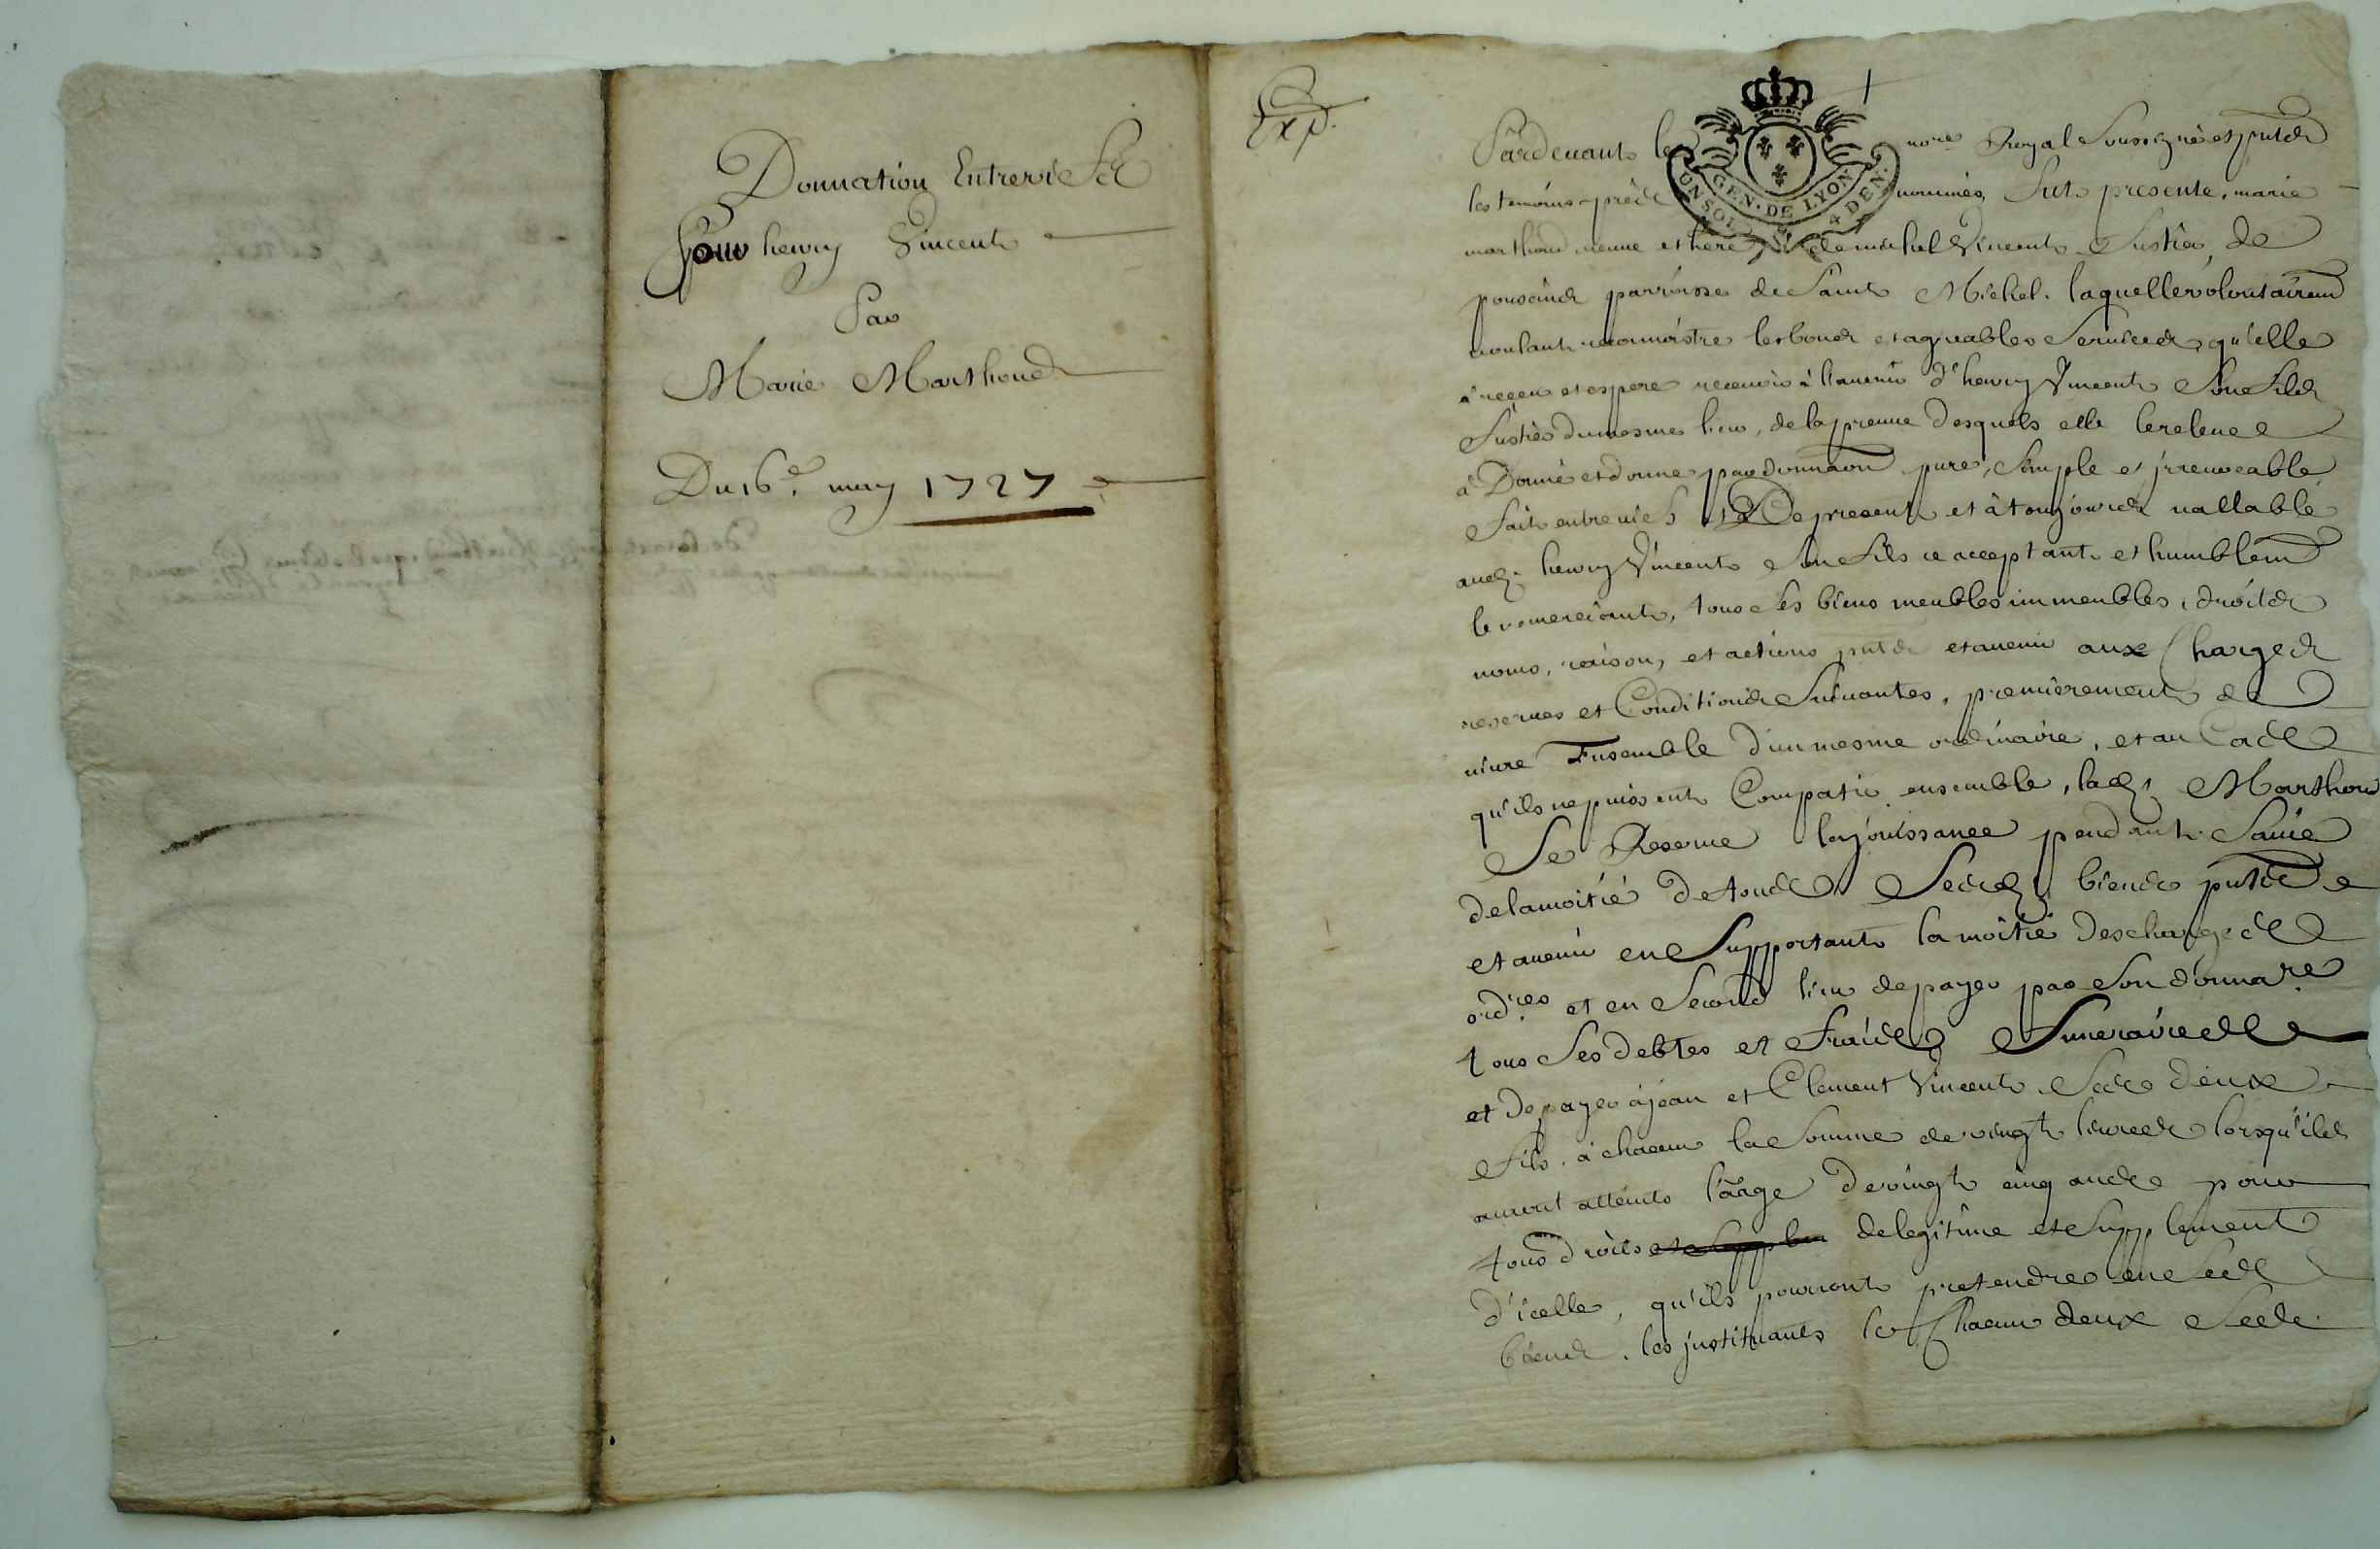 Donnation Entrevifs
Pour henry Vincent
Par
Marie Marthoud
Du 16e may 1727
Exp.
GEN. DE LYON
UN SOL 4 DEN.
Pardevant le nore Royal Soussigné et pnts
les temoins aprèz nommés, fut presente, marie
marthoud veuve et here de michel Vincent fustier de
parroisse de Saint Michel. laquelle volontairemt
voulant reconnoistre les bons et agreables services qu'elle
à reçeu et espere recevoir à l'avenir d'henry Vincent son fils
fustier du mesme lieu, de la preuve desquels elle le releve
à Donné et donne par donnaon pure, simple et jrrevocable
fait entre vifs De present et à toujours vallable
audt henry Vincent son fils ce acceptant et humblemt
le remerciant, tous ses biens meubles immeubles, droits
noms, raison, et actions pnts et avenir aux Charges
reserves et Conditions suivantes, premierement de
vivre Ensemble d'un mesme ordinaire, et au Cas
qu'ils ne puissent Compatir ensemble, ladt Marthoud
Se Reserve la jouissance pendant sa vie
de la moitié de tous Sesdt biens pnts
et avenir en Supportant la moitié des charges
ordres et en Second lieu de payer par son donnare
tous ses debtes et frais funeraires
et de payer à jean et Clement Vincent ses deux
fils, à chacun la somme de vingt livres lorsqu'ils
auront atteint l'âage de vingt cinq ans pour
tous droits de legitime et supplement
d'icelle, qu'ils pourront pretendre en ses
biens, les jnstituants les Chacun deux